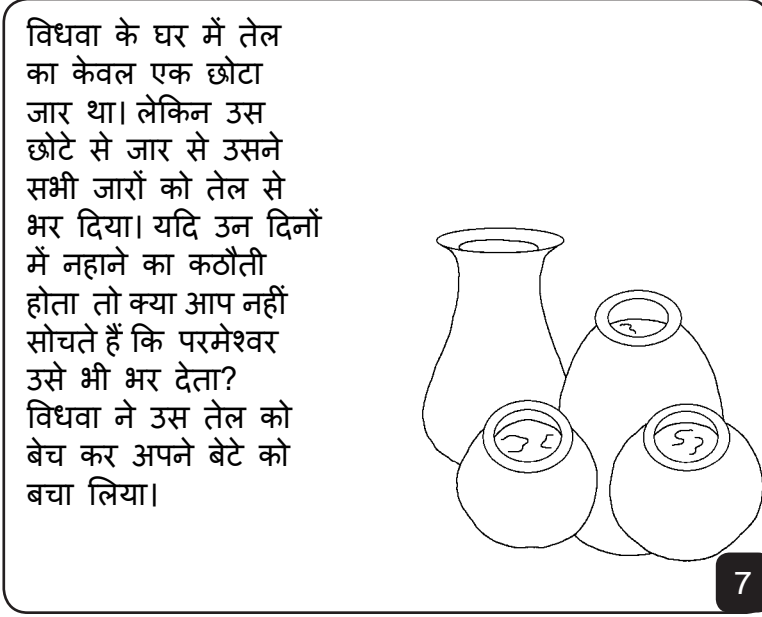 विधवा के घर में तेल
का केवल एक छोटा
जार था। लेकिन उस
छोटे से जार से उसने
सभी जारों को तेल से
भर दिया। यदि उन दिनों
में नहाने का कठौती
होता तो क्या आप नहीं
सोचते हैं कि परमेश्वर
उसे भी भर देता?
विधवा ने उस तेल को
बेच कर अपने बेटे को
बचा लिया।
7